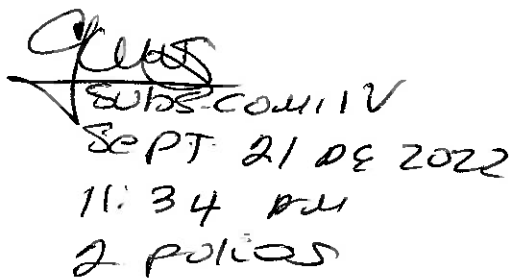 Subs-Com. IV
Sept 21 de 2022
11:34 AM
2 Folios